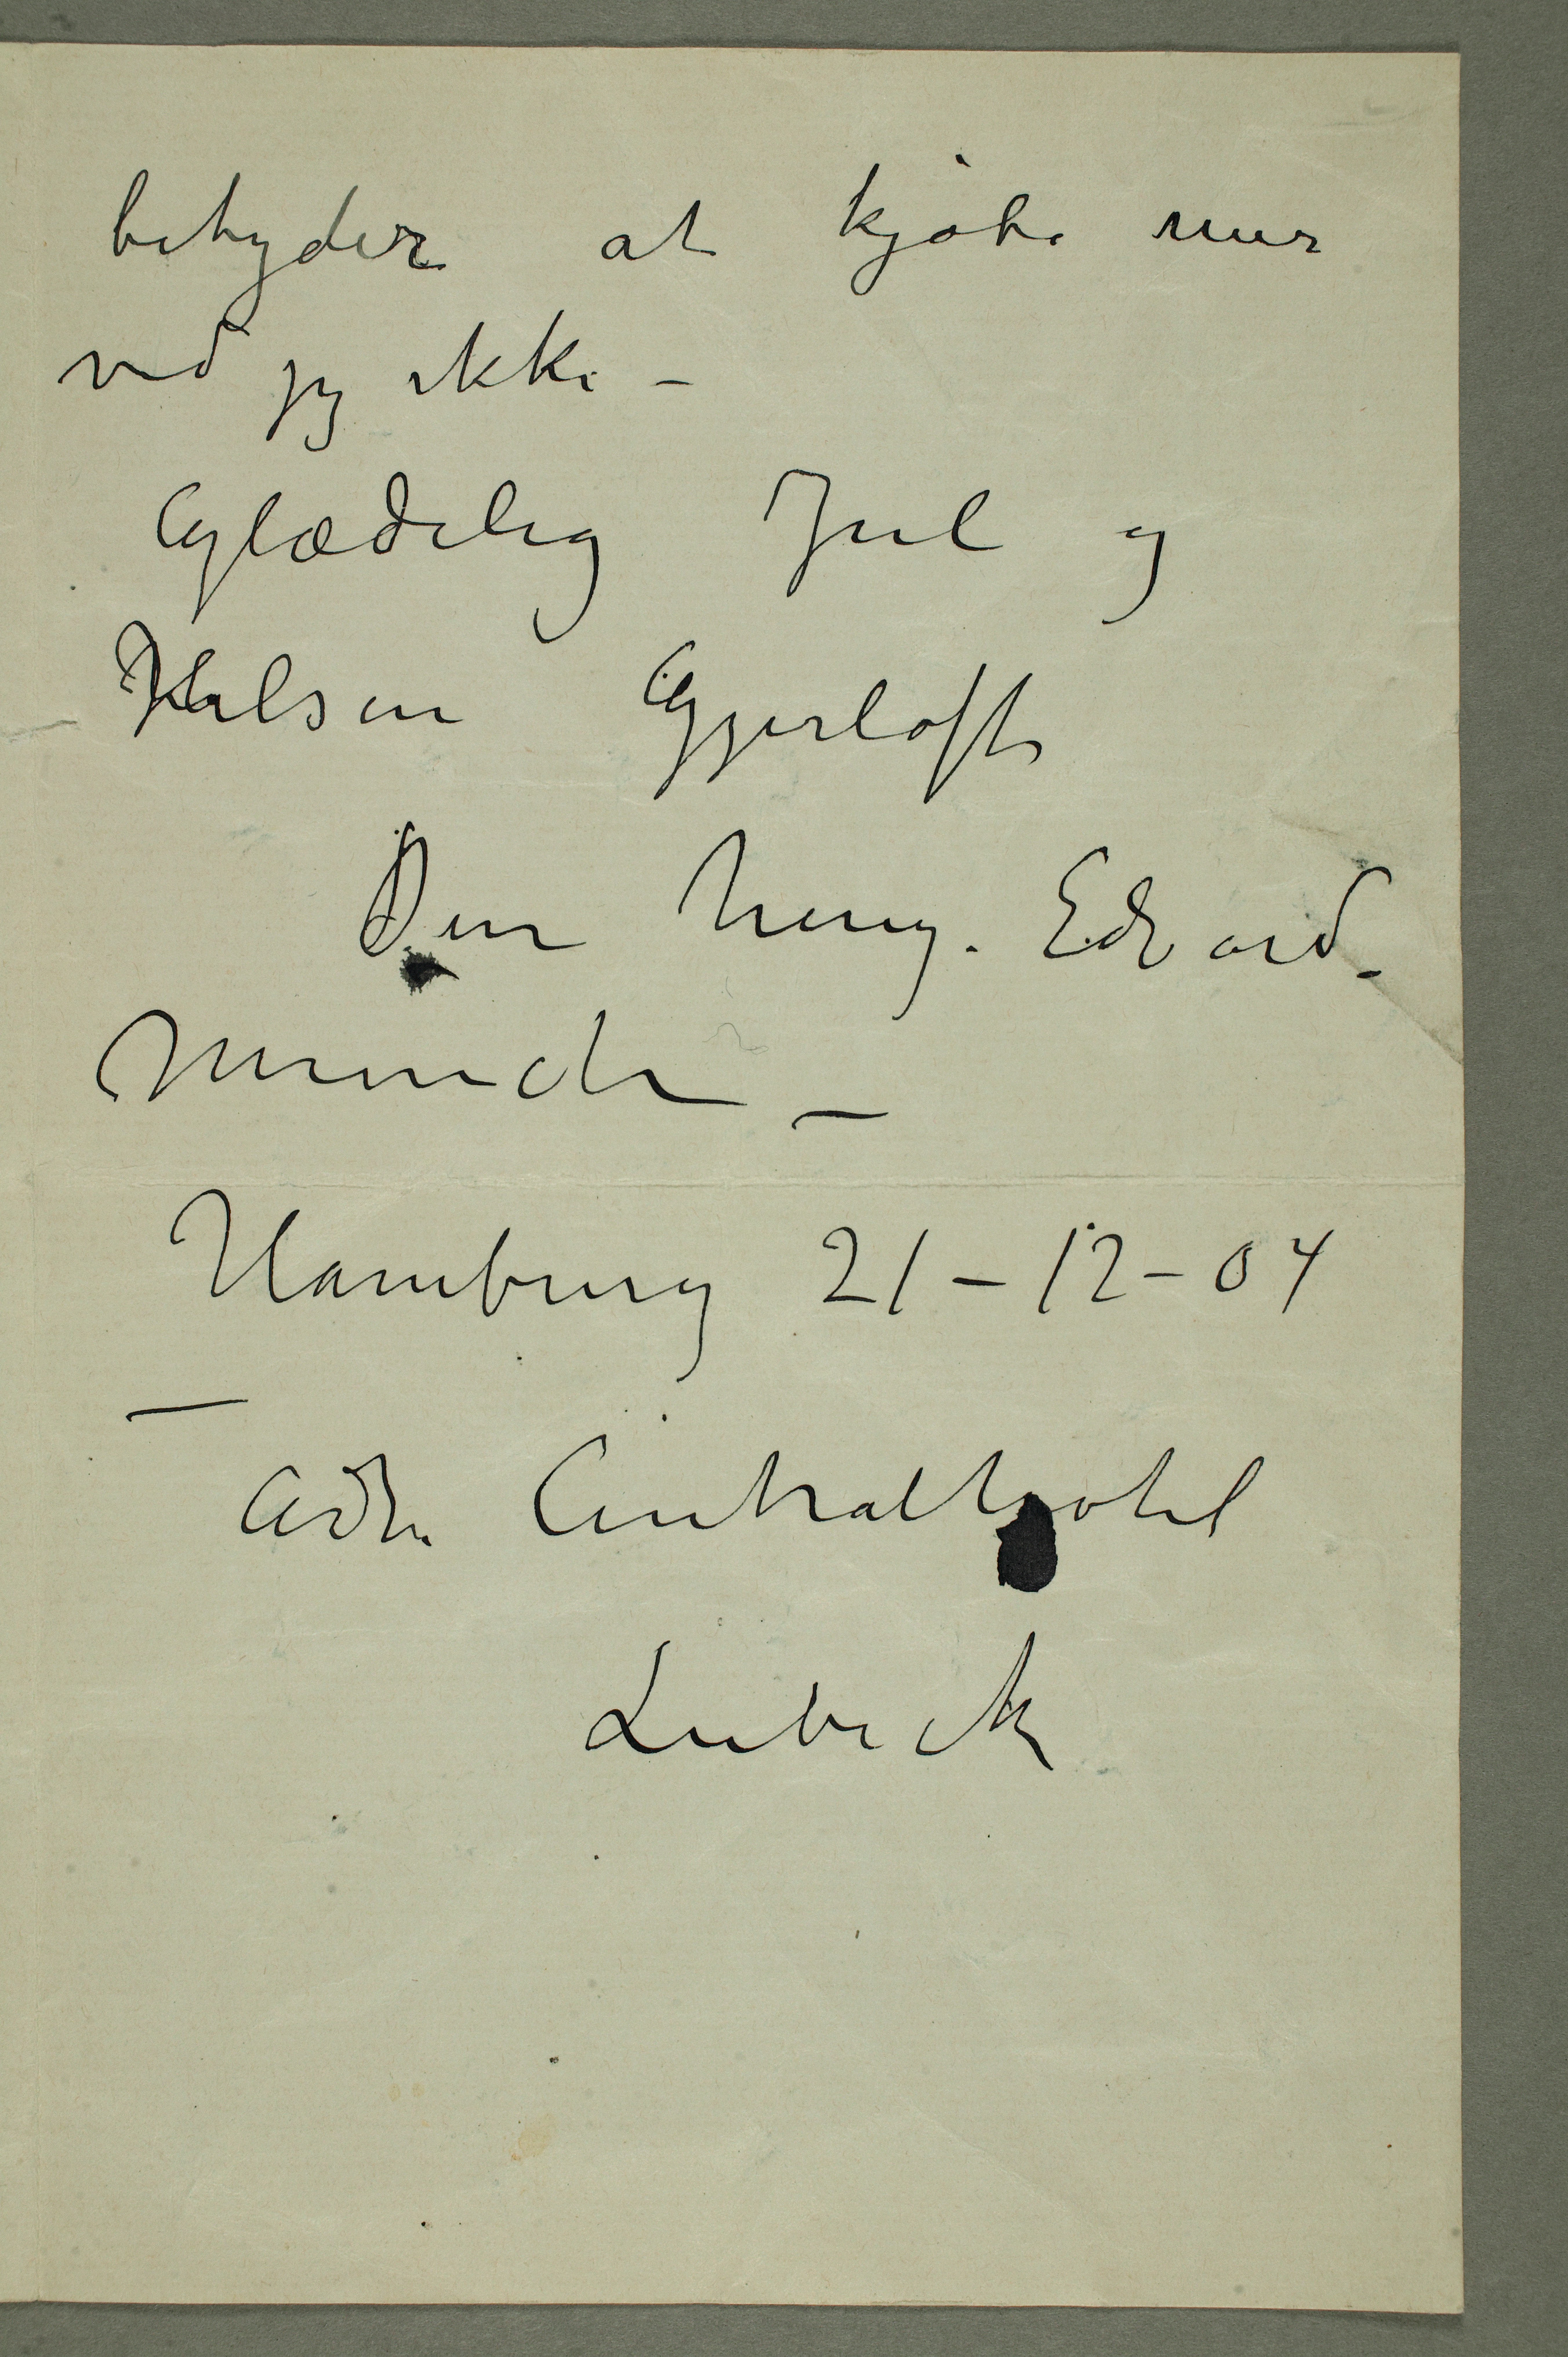 betyder at kjøbe mer
ved jeg ikke –
Glædelig Jul og
Hilsen Gjerløfts
Din heng. Edvard
Munch –
Hamburg 21–12–04
–
Adr. Centralhotel
Lubeck